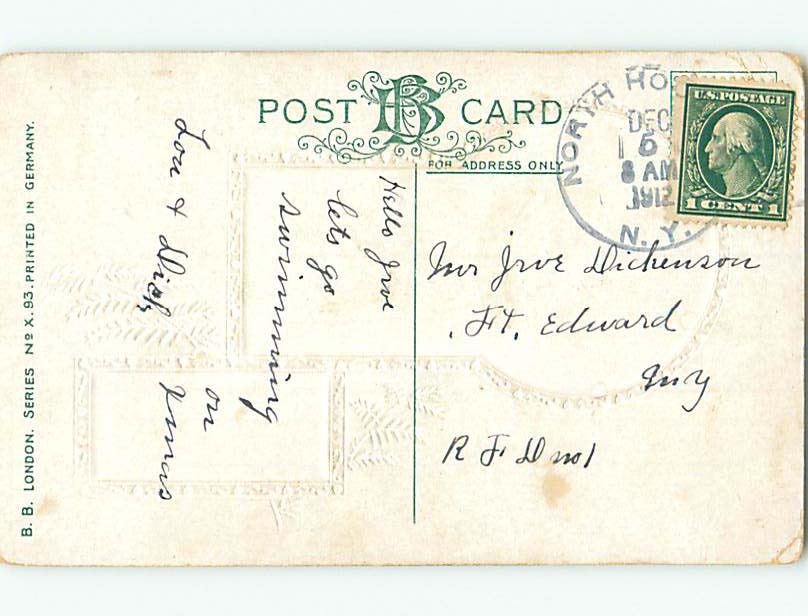 POST BB CARD
FOR ADDRESS ONLY
NORTH HO
DEC
5
8 AM
1912
N. Y.
U.S. POSTAGE
1 CENT 1
Mr Irve Dickenson
Ft. Edward
N Y
R F D no 1
Hello Irve
lets go
swimming
on
Xmas
Lou &
B. B. LONDON. SERIES No X. 93. PRINTED IN GERMANY.